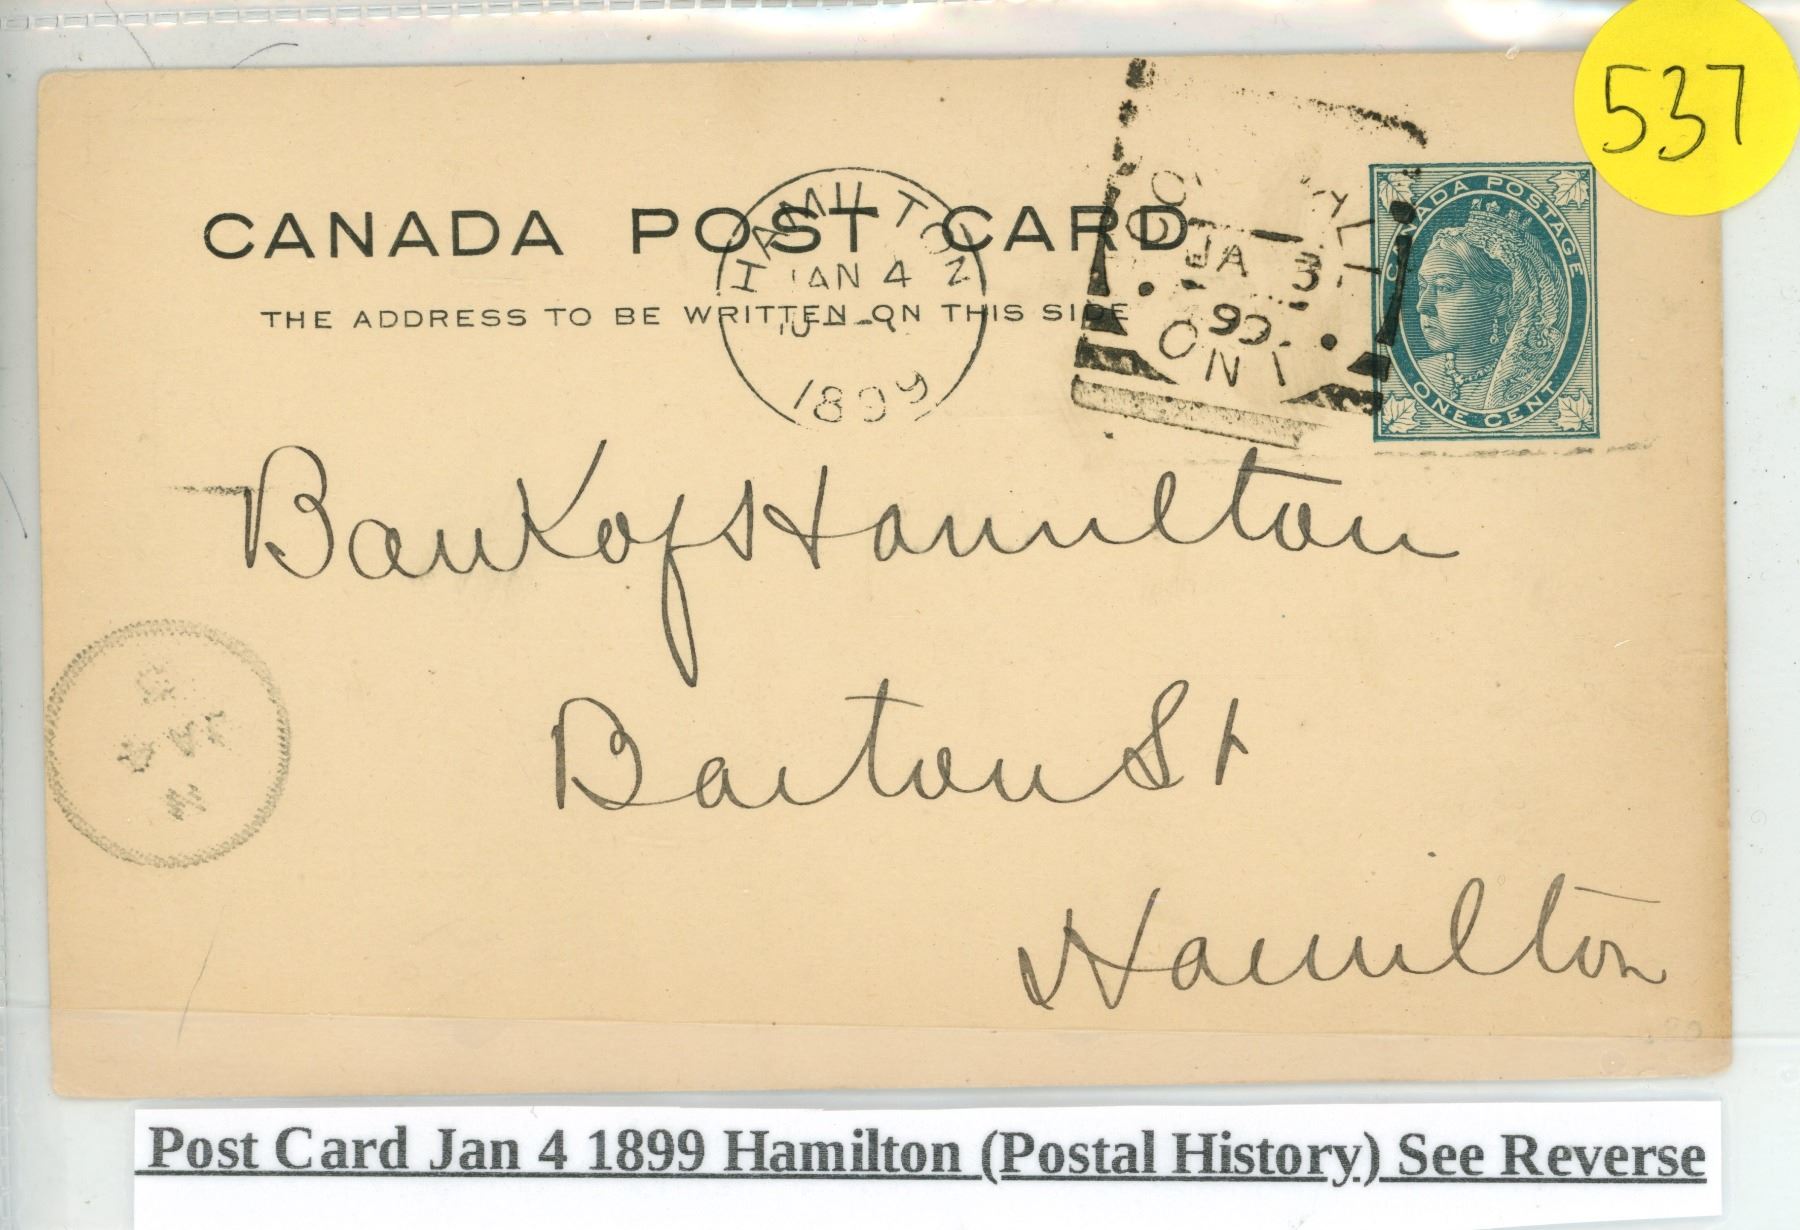 537
CANADA POST CARD
THE ADDRESS TO BE WRITTEN ON THIS SIDE
HAMILTON
JAN 4
1899
JA 3
99
ONT
CANADA POSTAGE
ONE CENT
Bank of Hamilton
Barton St
Hamilton
JA 4
Post Card Jan 4 1899 Hamilton (Postal History) See Reverse